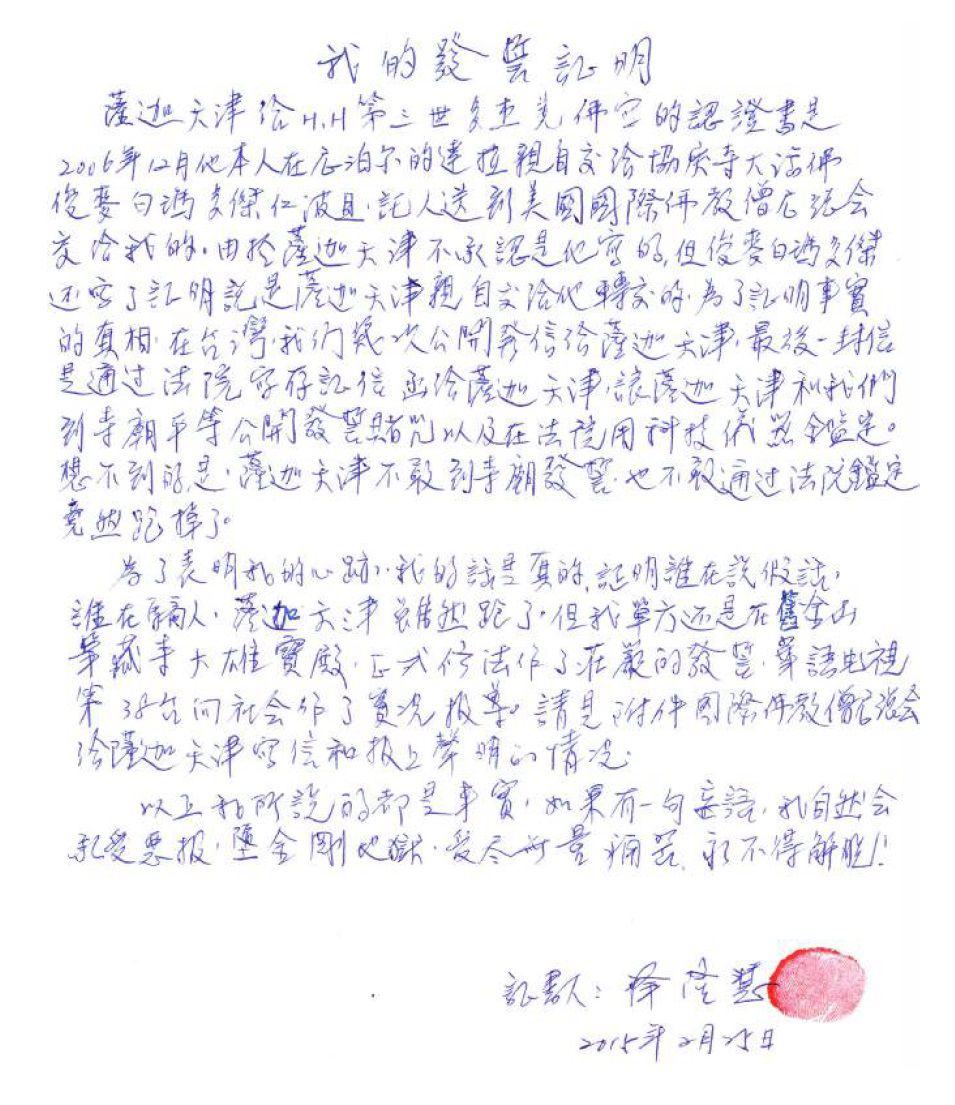 我的發誓証明
薩迦天津给H.H第三世多杰羌佛写的認證書是
2006年12月他本人在尼泊尔的達拉親自交给協庆寺大活佛
俊麥白瑪多傑仁波且,託人送到美國國際佛教僧尼总会
交给我的。由於薩迦天津不承認是他写的,但俊麥白瑪多傑
还写了証明説是薩迦天津親自交给他轉交的,為了証明事實
的真相,在台灣,我们幾次公開發信给薩迦天津,最後一封信
是通过法院寄存証信函给薩迦天津,讓薩迦天津和我們
到寺廟平等公開發誓賭咒以及在法院用科技儀器鑑定。
想不到的是,薩迦天津不敢到寺廟發誓,也不敢通过法院鑑定
竟然跑掉了。
为了表明我的心跡,我的話是真的,証明誰在説假話,
誰在騙人,薩迦天津雖然跑了,但我單方还是在舊金山
華藏寺大雄寶殿,正式修法作了莊嚴的發誓,華語电視
第38台向社会作了實况报導。請見附件國際佛教僧尼总会
给薩迦天津写信和报上聲明的情况.
以上我所説的都是事實,如果有一句妄語,我自然会
承受惡报,墮金剛地獄,受尽無量痛苦,永不得解脱!
証書人:釋隆慧
2015年2月25日